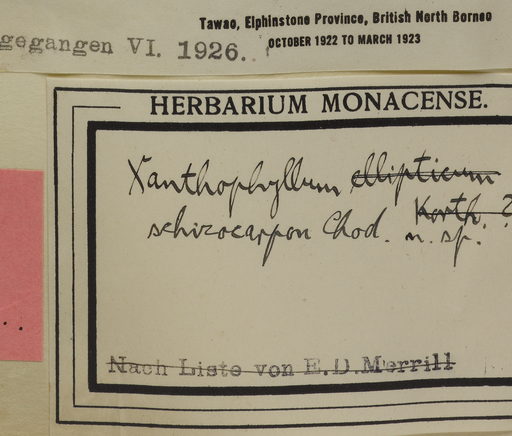 Tawao, Elphinstone Province, British North Borneo
OCTOBER 1922 TO MARCH 1923
gegangen VI. 1926.
HERBARIUM MONACENSE.
Xanthophyllum ellipticum
Korth. ?
schizocarpon Chod. n. sp.
Nach Liste von E.D.Merrill